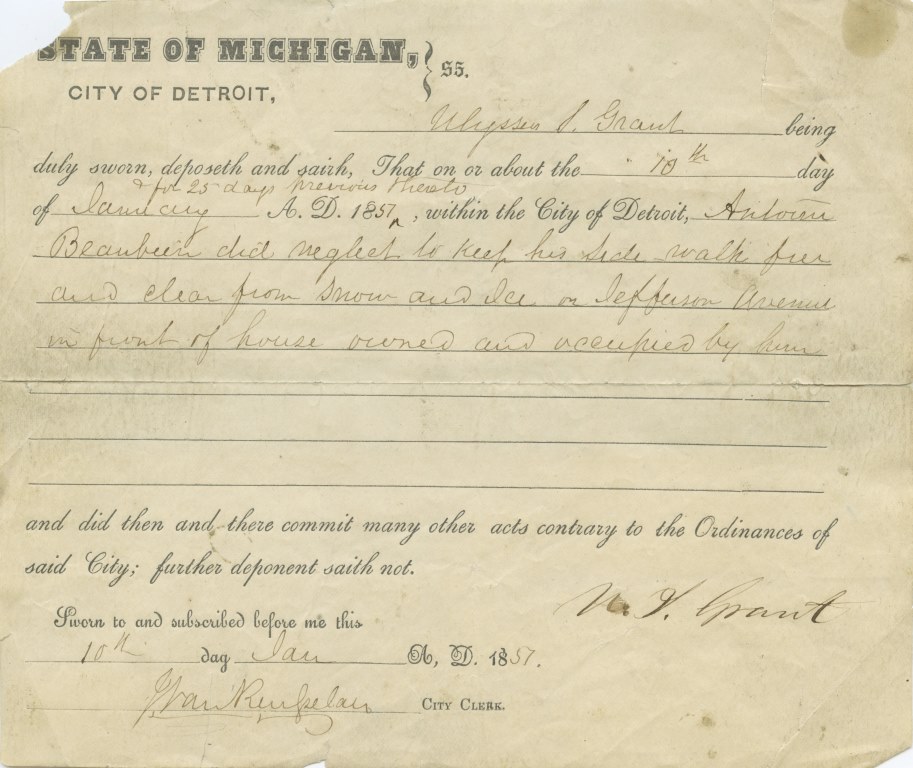 STATE OF MICHIGAN, } SS.
CITY OF DETROIT,
Ulysses S. Grant being
duly sworn, deposeth and saith, That on or about the 10th day
& for 25 days previous thereto
of January A. D. 1857 ^, within the City of Detroit, Antoien
Beaubien did neglect to keep his side walk free
and clear from Snow and Ice on Jefferson Avenue
in front of house owned and occupied by him
and did then and there commit many other acts contrary to the Ordinances of
said City; further deponent saith not.
U. S. Grant
Sworn to and subscribed before me this
10th day Jan A, D. 1857.
CITY CLERK.